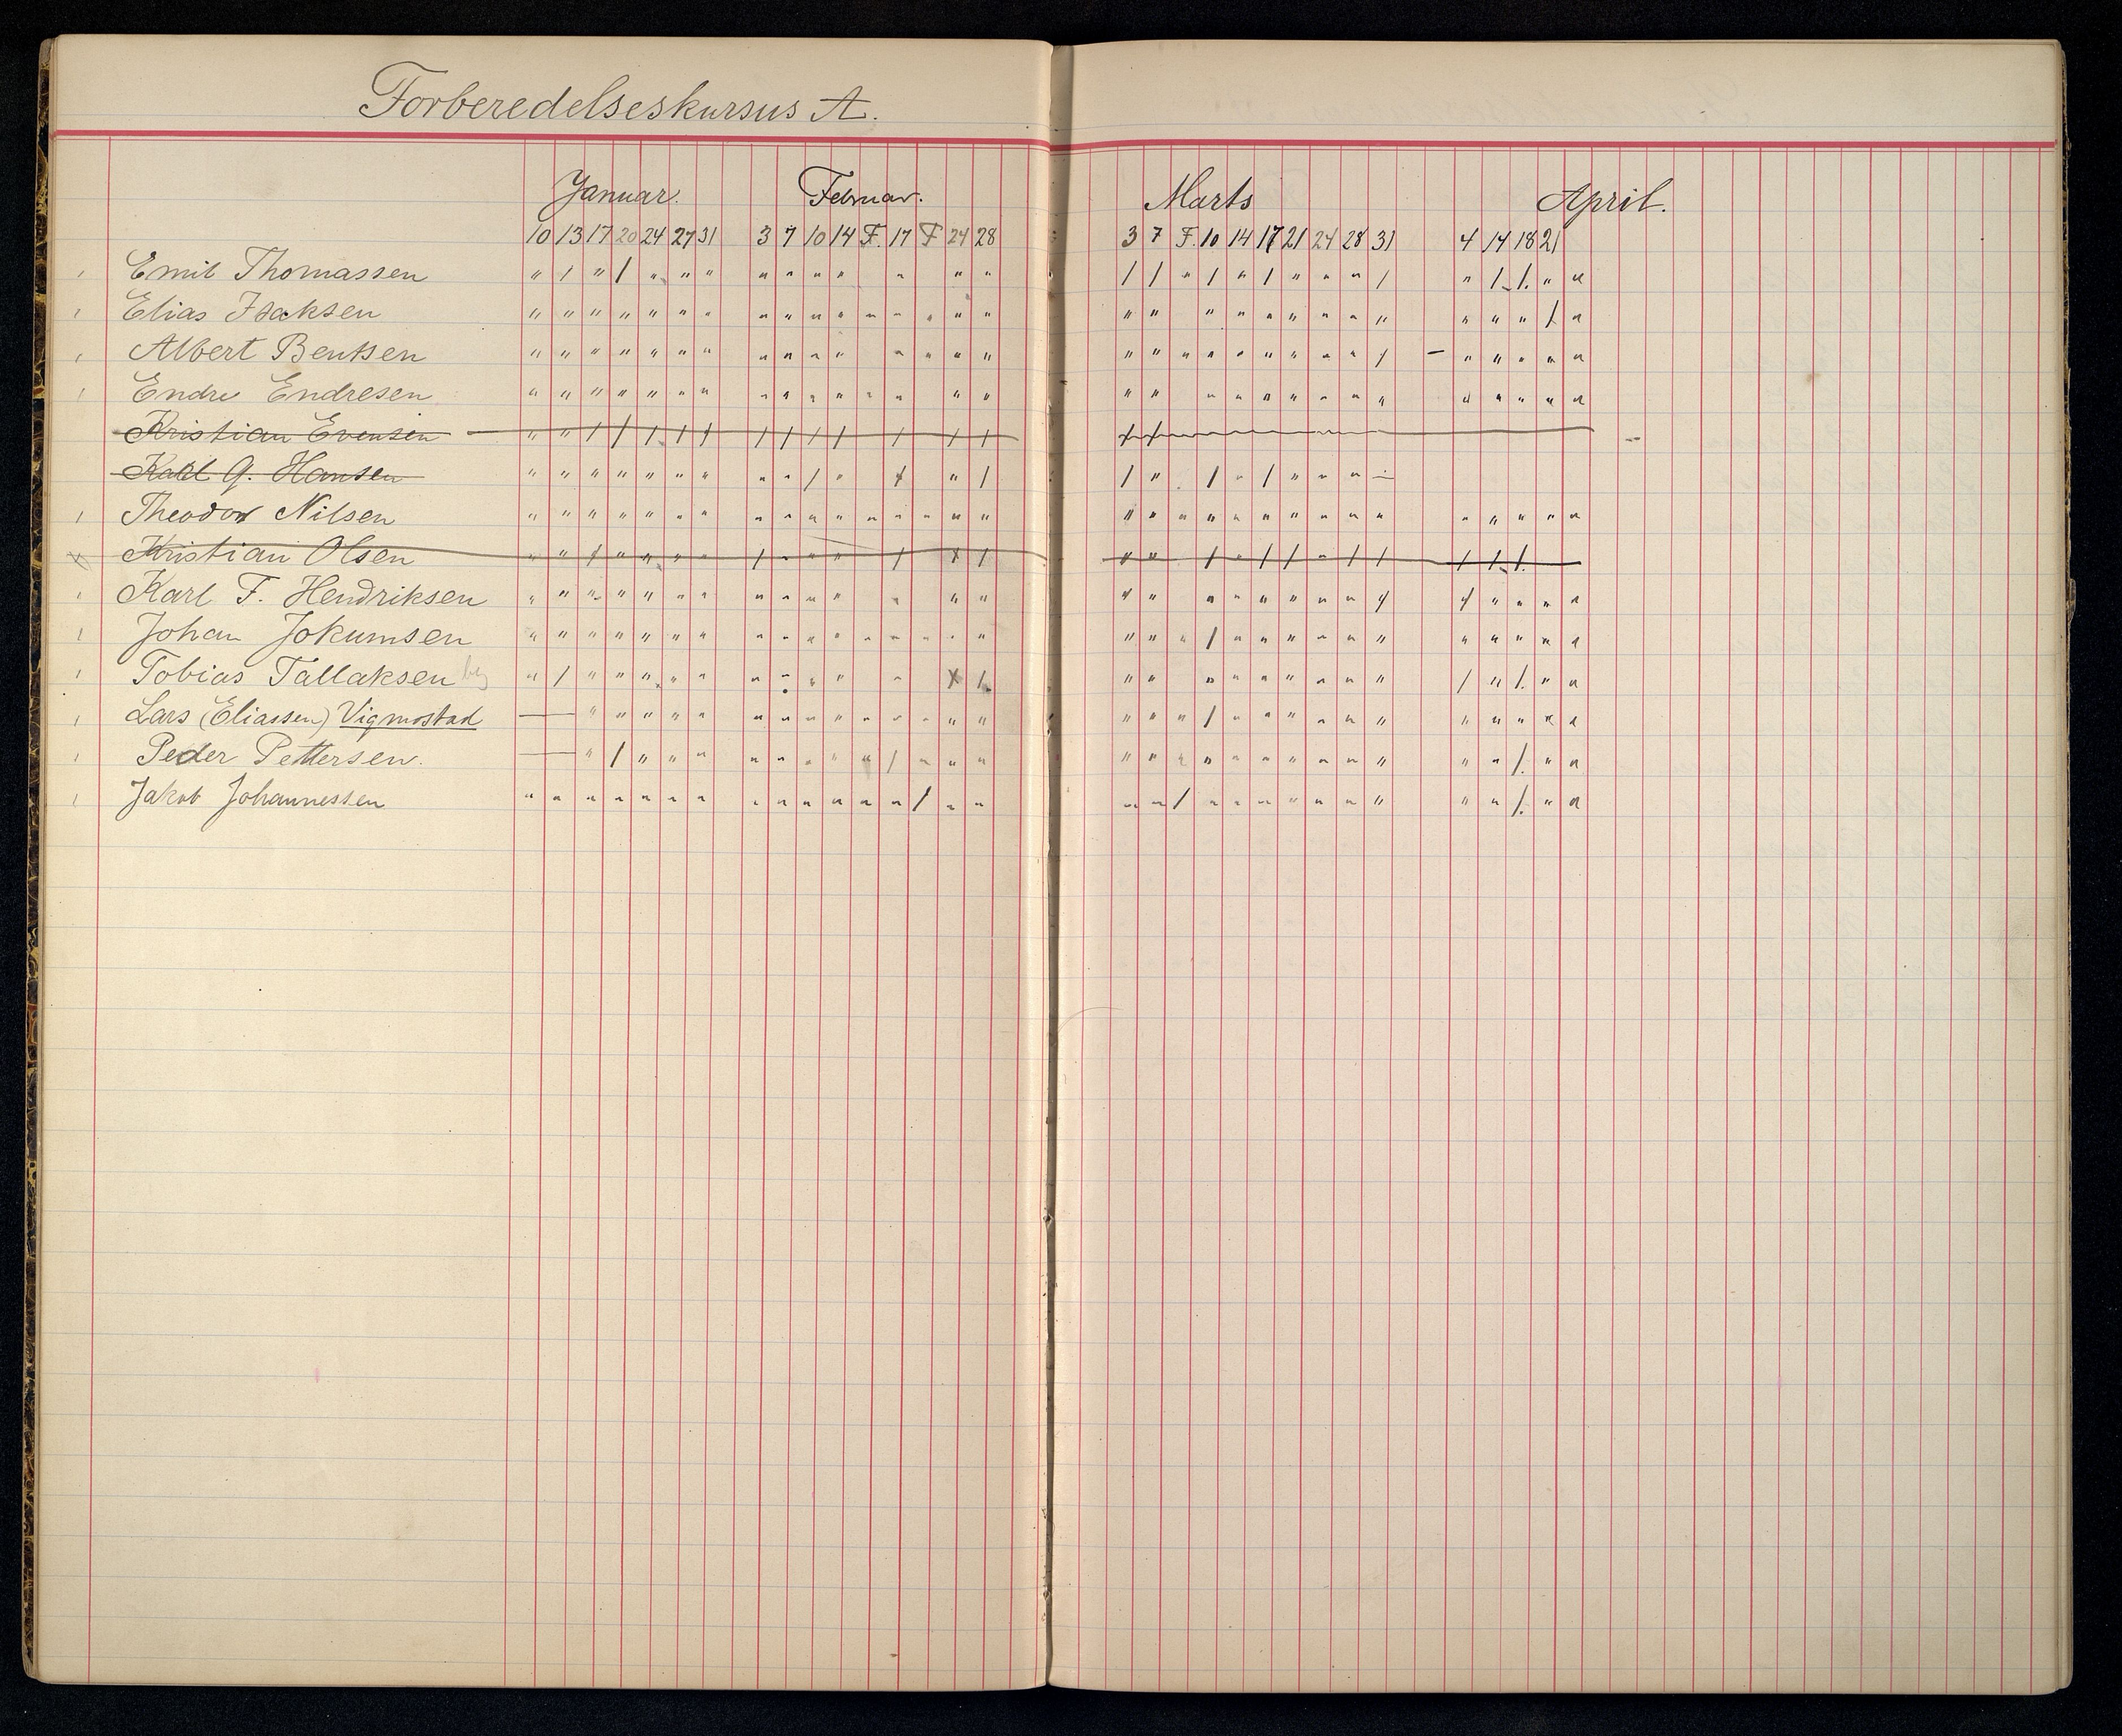 Forberedelseskursus A.
Januar. Februar. Marts April.
10 13 17 20 24 27 31 3 7 10 14 F. 17 F 24 28 3 7 F. 10 14 17 21 24 28 31 4 14 18 21
Emil Thomassen
Elias Isaksen
Albert Bentsen
Endre Endresen
Kristian Evensen
Karl G. Hansen
Theodor Nilsen
Kristian Olsen
Karl F. Hendriksen
Johan Jokumsen
Tobias Tallaksen
Lars (Eliassen) Vigmostad
Peder Pettersen.
Jakob Johannessen